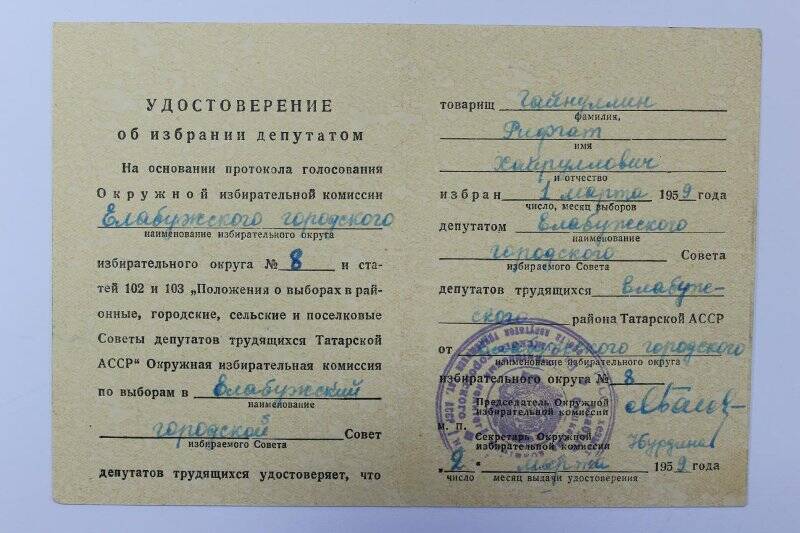 УДОСТОВЕРЕНИЕ
об избрании депутатом
На основании протокола голосования
Окружной избирательной комиссии
Елабужского городского
наименование избирательного округа
избирательного округа № 8 и ста-
тей 102 и 103 „Положения о выборах в рай-
онные, городские, сельские и поселковые
Советы депутатов трудящихся Татарской
АССР“ Окружная избирательная комиссия
по выборам в Елабужский
наименование
городской Совет
избираемого Совета
депутатов трудящихся удостоверяет, что
товарищ Гайнуллин
фамилия,
Рифгат
имя
Хайруллович
и отчество
избран 1 марта 1959 года
число, месяц выборов
депутатом Елабужского
наименование
городского Совета
избираемого Совета
депутатов трудящихся Елабуж-
ского района Татарской АССР
от Елабужского городского
наименование избирательного округа
избирательного округа № 8
Председатель Окружной
избирательной комиссии
М. П.
Секретарь Окружной
избирательной комиссии
„2“ марта 1959 года
число месяц выдачи удостоверения